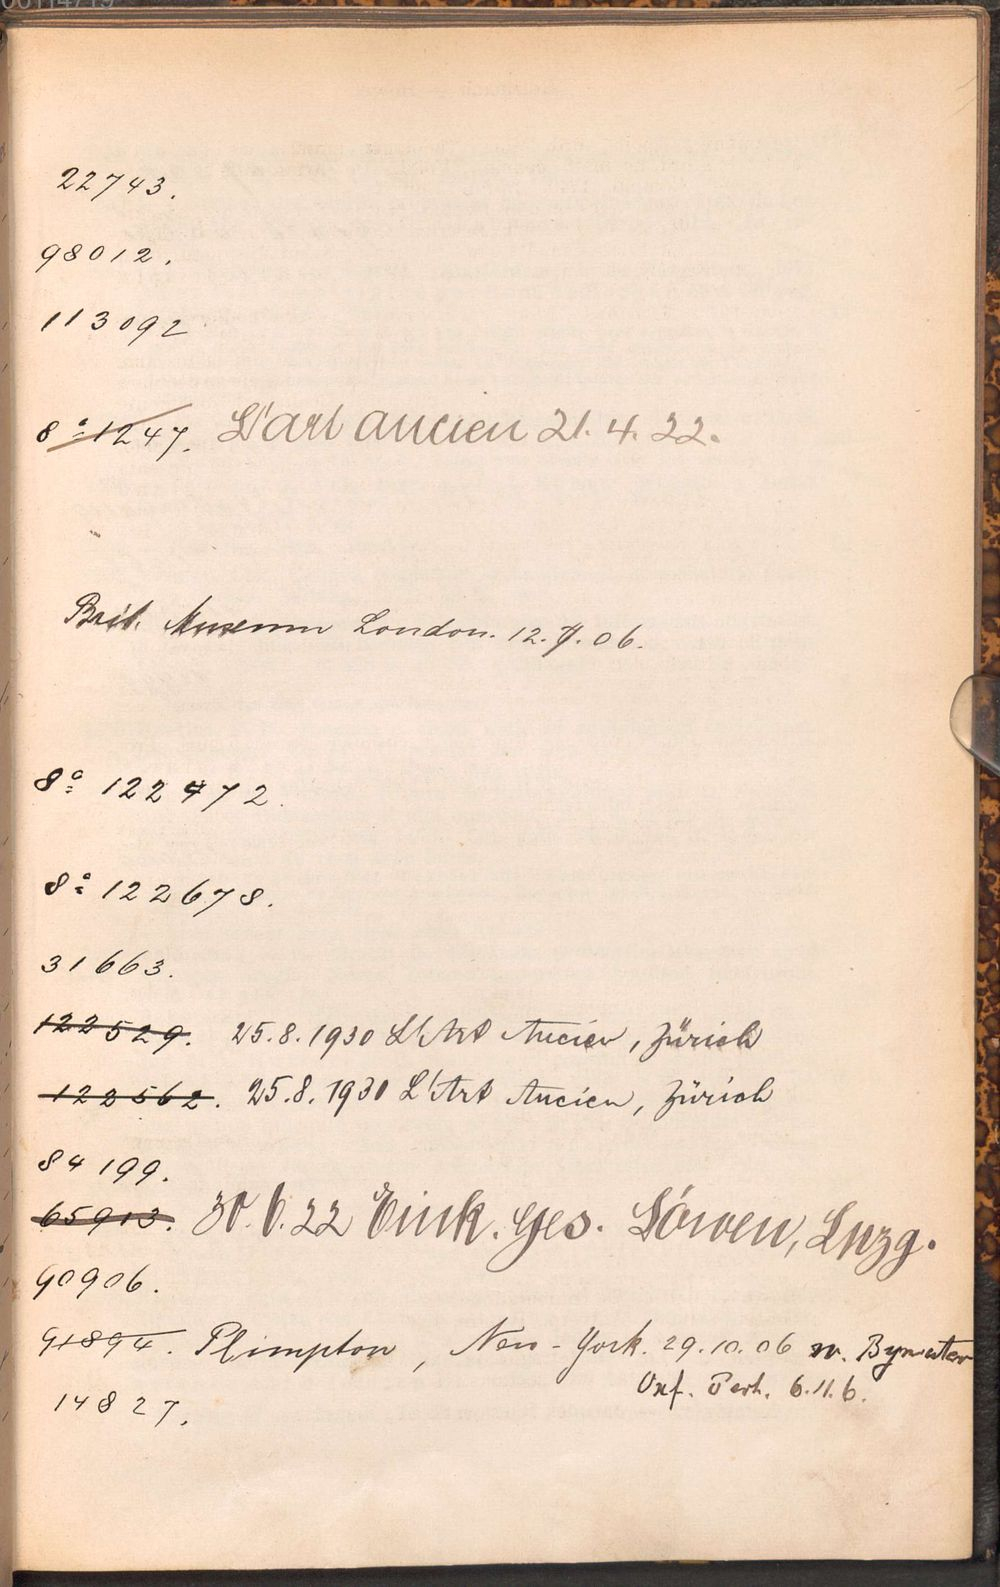 22743.
98012.
113092
8º 1247. L'art ancien 21. 4. 22.
Brit. Museum London. 12. 7. 06.
8º 122472.
8º 122678.
31663.
122529. 25.8.1930 L'Art Ancien, Zürich
122562. 25.8.1930 L'Art Ancien, Zürich
84199.
65913. 30. 6. 22 Eink. Ges. Löwen, Lpzg.
90906.
91894. Plimpton, New-York. 29.10.06 w. Bywater
Oxf. 6.11.6.
14827.